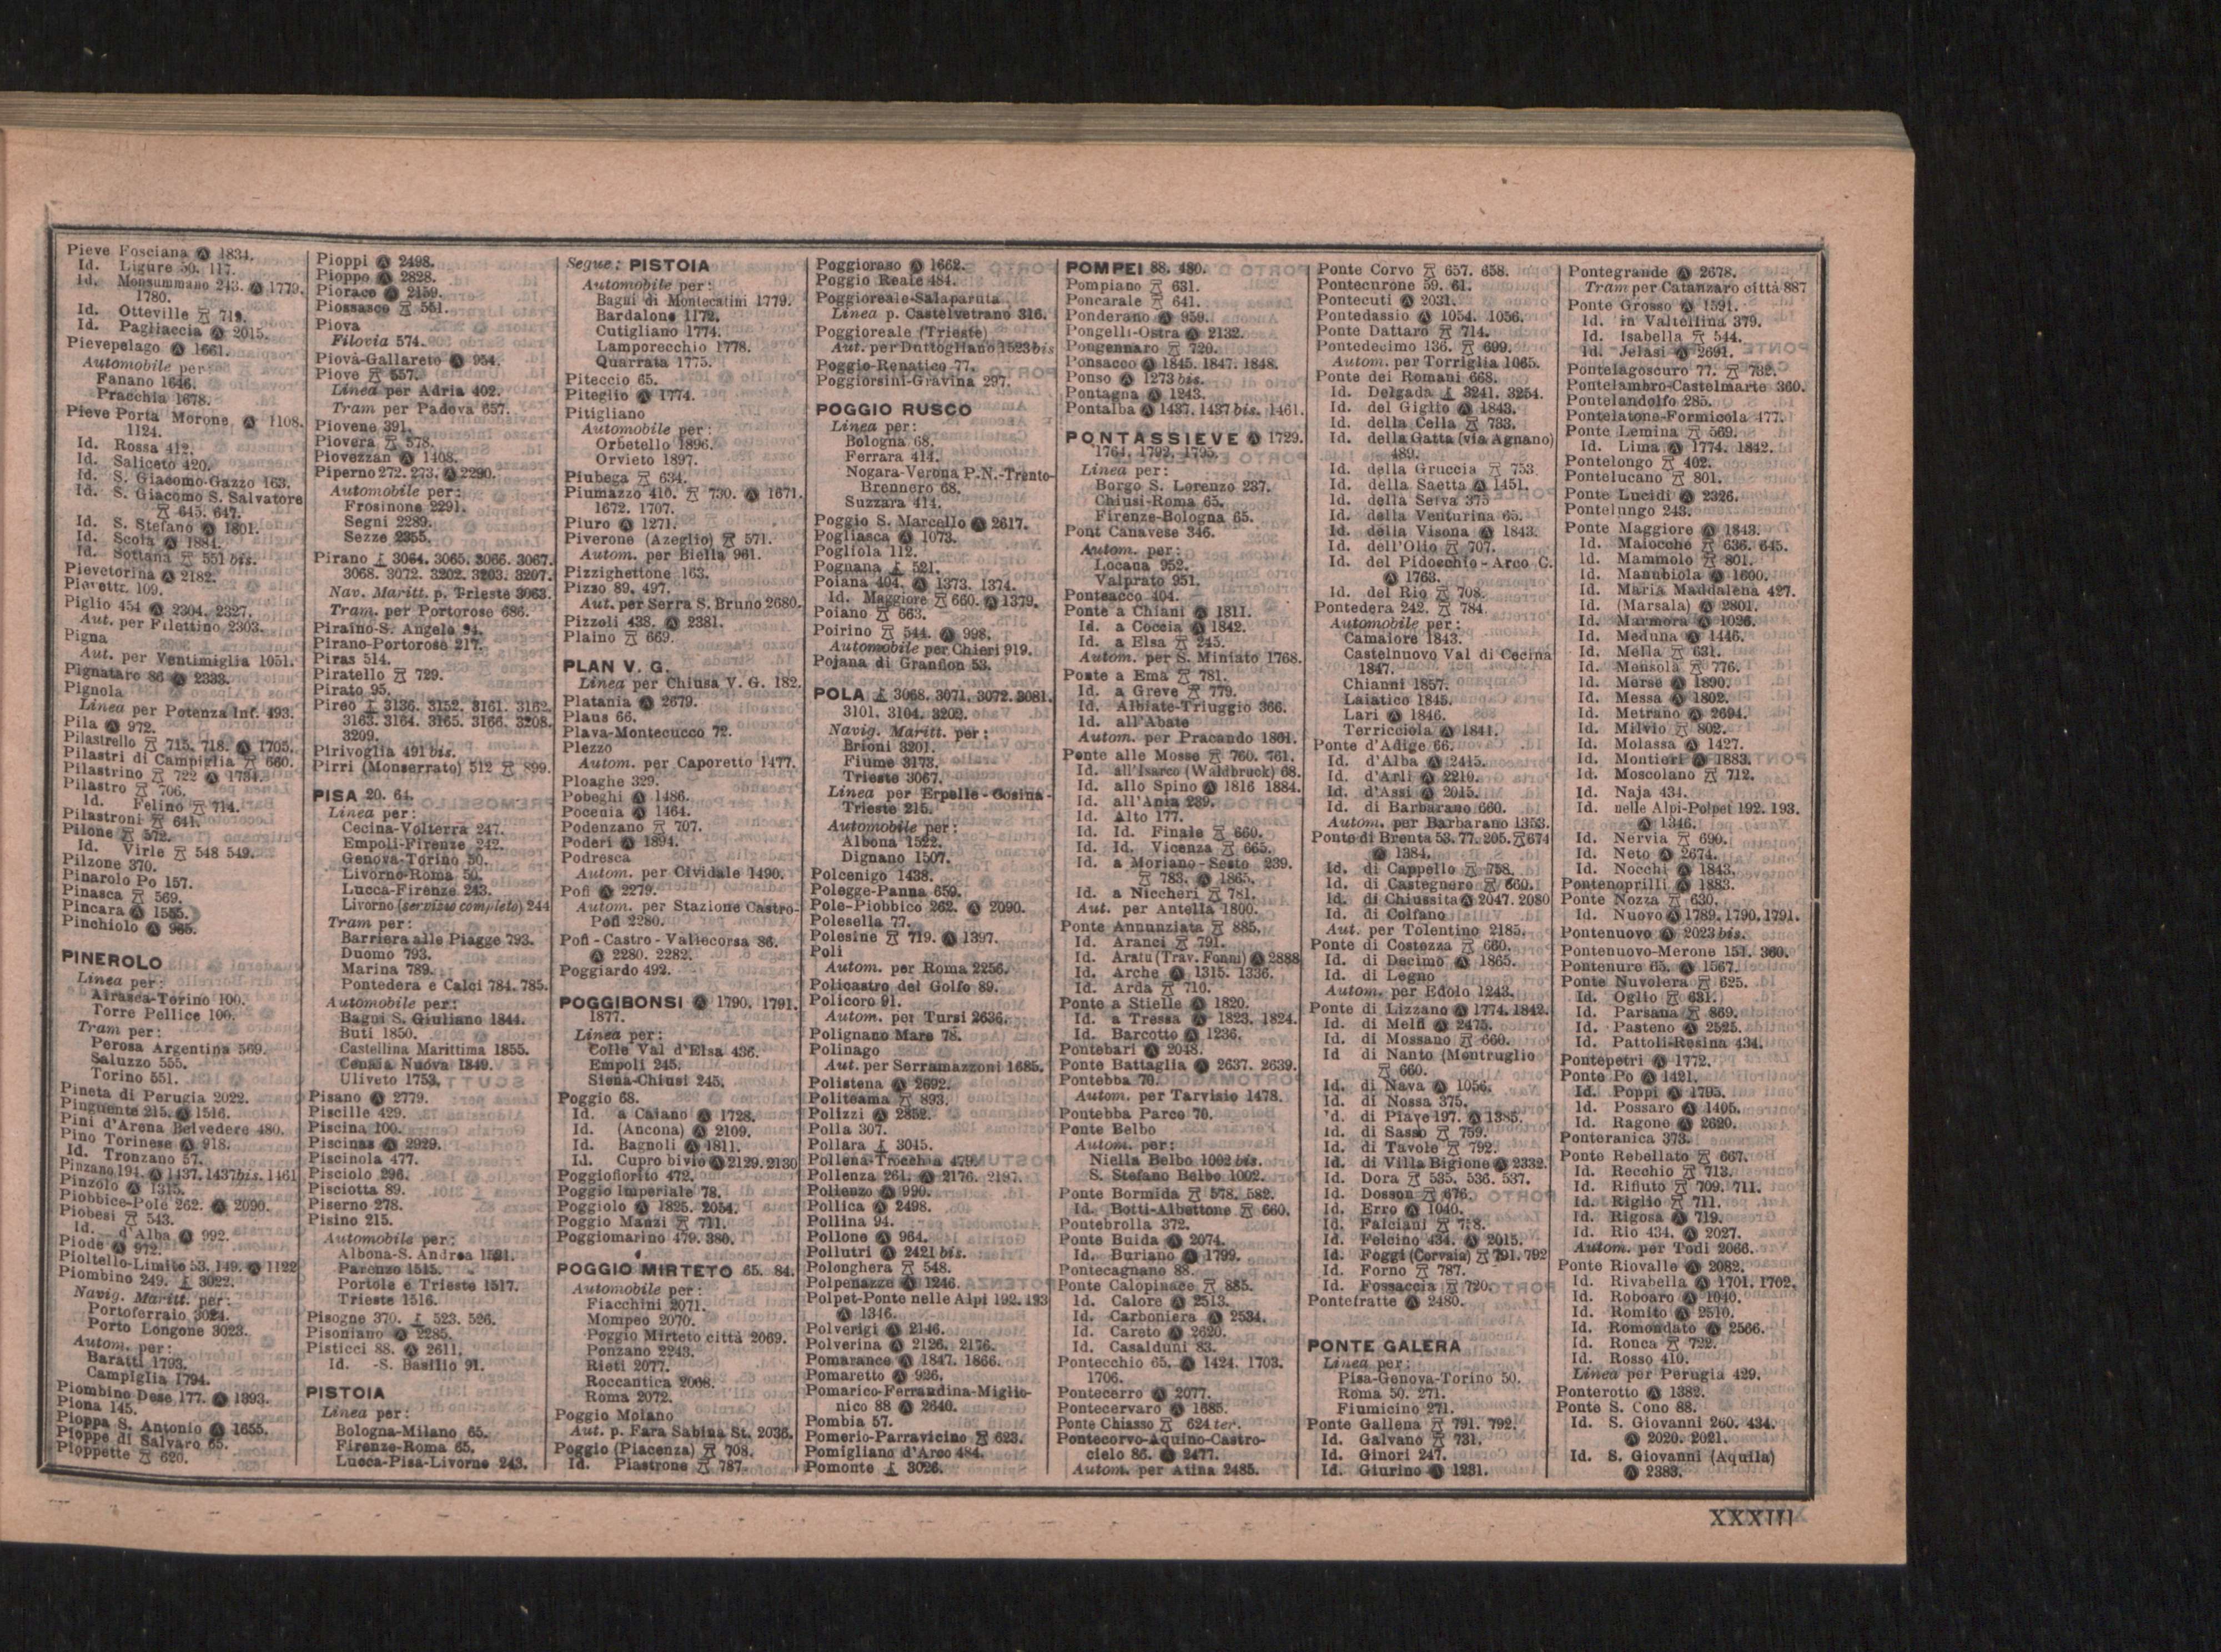 Pieve Fosciana Ⓐ 1834.
Id. Ligure 50. 117.
Id. Monsummano 243. Ⓐ 1779.
1780.
Id. Otteville 719.
Id. Pagliaccia Ⓐ 2015.
Pievepelago Ⓐ 1661.
Automobile per:
Fanano 1646.
Pracchia 1678.
Pieve Porta Morone Ⓐ 1108.
1124.
Id. Rossa 412.
Id. Saliceto 420.
Id. S. Giacomo-Gazzo 163.
Id. S. Giacomo S. Salvatore
645. 647.
Id. S. Stefano Ⓐ 1801.
Id. Scola Ⓐ 1884.
Id. Sottana 551 bis.
Pievetorina Ⓐ 2182.
Pievetta 109.
Piglio 454 Ⓐ 2304. 2327.
Aut. per Filettino 2303.
Pigna
Aut. per Ventimiglia 1051.
Pignataro 86 Ⓐ 2333.
Pignola
Linea per Potenza Inf. 493.
Pila Ⓐ 972.
Pilastrello 715. 718. Ⓐ 1705.
Pilastri di Campiglia 660.
Pilastrino 722 Ⓐ 1734.
Pilastro 706.
Id. Felino 714.
Pilastroni 641.
Pilone 572.
Id. Virle 548 549.
Pilzone 370.
Pinarolo Po 157.
Pinasca 569.
Pincara Ⓐ 1555.
Pinchiolo Ⓐ 965.
PINEROLO
Linea per:
Airasca-Torino 100.
Torre Pellice 100.
Tram per:
Perosa Argentina 569.
Saluzzo 555.
Torino 551.
Pineta di Perugia 2022.
Pinguente 215. Ⓐ 1516.
Pini d'Arena Belvedere 480.
Pino Torinese Ⓐ 918.
Id. Tronzano 57.
Pinzano 194. Ⓐ 1437. 1437bis. 1461
Pinzolo Ⓐ 1315.
Piobbice-Pole 262. Ⓐ 2090.
Piobesi 543.
Id. d'Alba Ⓐ 992.
Piode Ⓐ 972.
Pioltello-Limito 53. 149. Ⓐ 1122
Piombino 249. ⚓ 3022.
Navig. Maritt. per:
Portoferraio 3024.
Porto Longone 3023.
Autom. per:
Baratti 1793.
Campiglia 1794.
Piombino Dese 177. Ⓐ 1393.
Piona 145.
Pioppa S. Antonio Ⓐ 1655.
Pioppe di Salvaro 65.
Pioppette 620.
Pioppi Ⓐ 2498.
Pioppo Ⓐ 2828.
Pioraco Ⓐ 2159.
Piossasco 551.
Piova
Filovia 574.
Piovà-Gallareto Ⓐ 954.
Piove 557.
Linea per Adria 402.
Tram per Padova 657.
Piovene 391.
Piovera 578.
Piovezzan Ⓐ 1408.
Piperno 272. 273. Ⓐ 2290.
Automobile per:
Frosinone 2291.
Segni 2289.
Sezze 2355.
Pirano ⚓ 3064. 3065. 3066. 3067.
3068. 3072. 3202. 3203. 3207.
Nav. Maritt. p. Trieste 3063.
Tram. per Portorose 686.
Piraino-S. Angelo 94.
Pirano-Portorose 217.
Piras 514.
Piratello 729.
Pirato 95.
Pireo ⚓ 3136. 3152. 3161. 3162.
3163. 3164. 3165. 3166. 3208.
3209.
Pirivoglia 491 bis.
Pirri (Monserrato) 512 899.
PISA 20. 64.
Linea per:
Cecina-Volterra 247.
Empoli-Firenze 242.
Genova-Torino 50.
Livorno-Roma 50.
Lucca-Firenze 243.
Livorno (servizio completo) 244
Tram per:
Barriera alle Piagge 793.
Duomo 793.
Marina 789.
Pontedera e Calci 784. 785.
Automobile per:
Bagni S. Giuliano 1844.
Buti 1850.
Castellina Marittima 1855.
Cenaia Nuova 1849.
Uliveto 1753.
Pisano Ⓐ 2779.
Piscille 429.
Piscina 100.
Piscinas Ⓐ 2929.
Piscinola 477.
Pisciolo 296.
Pisciotta 89.
Piserno 278.
Pisino 215.
Automobile per:
Albona-S. Andrea 1521.
Parenzo 1515.
Portole e Trieste 1517.
Trieste 1516.
Pisogne 370. ⚓ 523. 526.
Pisoniano Ⓐ 2285.
Pisticci 88. Ⓐ 2611.
Id. -S. Basilio 91.
PISTOIA
Linea per:
Bologna-Milano 65.
Firenze-Roma 65.
Lucca-Pisa-Livorno 243.
Segue: PISTOIA
Automobile per:
Bagni di Montecatini 1779.
Bardalone 1172.
Cutigliano 1774.
Lamporecchio 1778.
Quarrata 1775.
Piteccio 65.
Piteglio Ⓐ 1774.
Pitigliano
Automobile per:
Orbetello 1896.
Orvieto 1897.
Piubega 634.
Piumazzo 410. 730. Ⓐ 1671.
1672. 1707.
Piuro Ⓐ 1271.
Piverone (Azeglio) 571.
Autom. per Biella 961.
Pizzighettone 163.
Pizzo 89. 497.
Aut. per Serra S. Bruno 2680.
Pizzoli 438. Ⓐ 2381.
Plaino 669.
PLAN V. G.
Linea per Chiusa V. G. 182.
Platania Ⓐ 2679.
Plaus 66.
Plava-Montecucco 72.
Plezzo
Autom. per Caporetto 1477.
Ploaghe 329.
Pobeghi Ⓐ 1486.
Pocenia Ⓐ 1464.
Podenzano 707.
Poderi Ⓐ 1894.
Podresca
Autom. per Cividale 1490.
Pofi Ⓐ 2279.
Autom. per Stazione Castro-
Pofi 2280.
Pofi - Castro - Vallecorsa 86.
Ⓐ 2280. 2282.
Poggiardo 492.
POGGIBONSI Ⓐ 1790. 1791.
1877.
Linea per:
Colle Val d'Elsa 436.
Empoli 245.
Siena-Chiusi 245.
Poggio 68.
Id. a Caiano Ⓐ 1728.
Id. (Ancona) Ⓐ 2109.
Id. Bagnoli Ⓐ 1811.
Id. Cupro bivio Ⓐ 2129. 2130
Poggiofiorito 472.
Poggio Imperiale 78.
Poggiolo Ⓐ 1825. 2054.
Poggio Manzi 711.
Poggiomarino 479. 380.
POGGIO MIRTETO 65. 84.
Automobile per:
Fiacchini 2071.
Mompeo 2070.
Poggio Mirteto città 2069.
Ponzano 2243.
Rieti 2077.
Roccantica 2068.
Roma 2072.
Poggio Moiano
Aut. p. Fara Sabina St. 2036.
Poggio (Piacenza) 708.
Id. Piastrone 787.
Poggioraso Ⓐ 1662.
Poggio Reale 484.
Poggioreale-Salaparuta
Linea p. Castelvetrano 316.
Poggioreale (Trieste)
Aut. per Duttogliano 1523bis
Poggio Renatico 77.
Poggiorsini-Gravina 297.
POGGIO RUSCO
Linea per:
Bologna 68.
Ferrara 414.
Nogara-Verona P.N.-Trento-
Brennero 68.
Suzzara 414.
Poggio S. Marcello Ⓐ 2617.
Pogliasca Ⓐ 1073.
Pogliola 112.
Pognana ⚓ 521.
Poiana 404. Ⓐ 1373. 1374.
Id. Maggiore 660. Ⓐ 1379.
Poiano 663.
Poirino 544. Ⓐ 998.
Automobile per Chieri 919.
Pojana di Granfion 53.
POLA ⚓ 3068. 3071. 3072. 3081.
3101. 3104. 3202.
Navig. Maritt. per:
Brioni 3201.
Fiume 3173.
Trieste 3067.
Linea per Erpelle-Cosina-
Trieste 215.
Automobile per:
Albona 1522.
Dignano 1507.
Polcenigo 1438.
Polegge-Panna 659.
Pole-Piobbico 262. Ⓐ 2090.
Polesella 77.
Polesine 719. Ⓐ 1397.
Poli
Autom. per Roma 2256.
Policastro del Golfo 89.
Policoro 91.
Autom. per Tursi 2636.
Polignano Mare 78.
Polinago
Aut. per Serramazzoni 1685.
Polistena Ⓐ 2692.
Politeama 893.
Polizzi Ⓐ 2852.
Polla 307.
Pollara ⚓ 3045.
Pollena-Trocchia 479.
Pollenza 261. Ⓐ 2176. 2197.
Pollenzo Ⓐ 990.
Pollica Ⓐ 2498.
Pollina 94.
Pollone Ⓐ 964.
Pollutri Ⓐ 2421 bis.
Polonghera 548.
Polpenazze Ⓐ 1246.
Polpet-Ponte nelle Alpi 192. 193
Ⓐ 1346.
Polverigi Ⓐ 2146.
Polverina Ⓐ 2126. 2176.
Pomarance Ⓐ 1847. 1866.
Pomaretto Ⓐ 926.
Pomarico-Ferrandina-Miglio-
nico 88 Ⓐ 2640.
Pombia 57.
Pomerio-Parravicino 623.
Pomigliano d'Arco 484.
Pomonte ⚓ 3026.
POMPEI 88. 480.
Pompiano 631.
Poncarale 641.
Ponderano Ⓐ 959.
Pongelli-Ostra Ⓐ 2132.
Pongennaro 720.
Ponsacco Ⓐ 1845. 1847. 1848.
Ponso Ⓐ 1273 bis.
Pontagna Ⓐ 1243.
Pontalba Ⓐ 1437. 1437 bis. 1461.
PONTASSIEVE Ⓐ 1729.
1764. 1792. 1795.
Linea per:
Borgo S. Lorenzo 237.
Chiusi-Roma 65.
Firenze-Bologna 65.
Pont Canavese 346.
Autom. per:
Locana 952.
Valprato 951.
Ponteacco 404.
Ponte a Chiani Ⓐ 1811.
Id. a Coccia Ⓐ 1842.
Id. a Elsa 245.
Autom. per S. Miniato 1768.
Ponte a Ema 781.
Id. a Greve 779.
Id. Albiate-Triuggio 366.
Id. all'Abate
Autom. per Pracando 1861.
Ponte alle Mosse 760. 761.
Id. all'Isarco (Waldbruck) 68.
Id. allo Spino Ⓐ 1816 1884.
Id. all'Ania 239.
Id. Alto 177.
Id. Id. Finale 660.
Id. Id. Vicenza 665.
Id. a Moriano-Sesto 239.
783. Ⓐ 1865.
Id. a Niccheri 781.
Aut. per Antella 1800.
Ponte Annunziata 885.
Id. Aranci 791.
Id. Aratu (Trav. Fonni) Ⓐ 2888
Id. Arche Ⓐ 1315. 1336.
Id. Arda 710.
Ponte a Stielle Ⓐ 1820.
Id. a Tressa Ⓐ 1823. 1824.
Id. Barcotto Ⓐ 1236.
Pontebari Ⓐ 2048.
Ponte Battaglia Ⓐ 2637. 2639.
Pontebba 70.
Autom. per Tarvisio 1478.
Pontebba Parco 70.
Ponte Belbo
Autom. per:
Niella Belbo 1002 bis.
S. Stefano Belbo 1002.
Ponte Bormida 578. 582.
Id. Botti-Albettone 660.
Pontebrolla 372.
Ponte Buida Ⓐ 2074.
Id. Buriano Ⓐ 1799.
Pontecagnano 88.
Ponte Calopinace 885.
Id. Calore Ⓐ 2513.
Id. Carboniera Ⓐ 2534.
Id. Careto Ⓐ 2620.
Id. Casalduni 83.
Pontecchio 65. Ⓐ 1424. 1703.
1706.
Pontecerro Ⓐ 2077.
Pontecervaro Ⓐ 1685.
Ponte Chiasso 624 ter.
Pontecorvo-Aquino-Castro-
cielo 86. Ⓐ 2477.
Autom. per Atina 2485.
Ponte Corvo 657. 658.
Pontecurone 59. 61.
Pontecuti Ⓐ 2031.
Pontedassio Ⓐ 1054. 1056.
Ponte Dattaro 714.
Pontedecimo 136. 699.
Autom. per Torriglia 1065.
Ponte dei Romani 668.
Id. Delgada ⚓ 3241. 3254.
Id. del Giglio Ⓐ 1843.
Id. della Cella 733.
Id. della Gatta (via Agnano)
489.
Id. della Gruccia 753.
Id. della Saetta Ⓐ 1451.
Id. della Selva 375
Id. della Venturina 65.
Id. della Visona Ⓐ 1843.
Id. dell'Olio 707.
Id. del Pidocchio-Arco C.
Ⓐ 1763.
Id. del Rio 708.
Pontedera 242. 784.
Automobile per:
Camaiore 1843.
Castelnuovo Val di Cecina
1847.
Chianni 1857.
Laiatico 1845.
Lari Ⓐ 1846.
Terricciola Ⓐ 1841.
Ponte d'Adige 66.
Id. d'Alba Ⓐ 2415.
Id. d'Arli Ⓐ 2210.
Id. d'Assi Ⓐ 2015.
Id. di Barbarano 660.
Autom. per Barbarano 1353.
Ponte di Brenta 53. 77. 205. 674
Ⓐ 1384.
Id. di Cappello 758.
Id. di Castegnero 660.
Id. di Chiussita Ⓐ 2047. 2080
Id. di Colfano
Aut. per Tolentino 2185.
Ponte di Costozza 660.
Id. di Decimo Ⓐ 1865.
Id. di Legno
Autom. per Edolo 1243.
Ponte di Lizzano Ⓐ 1774. 1842.
Id. di Melfi Ⓐ 2475.
Id. di Mossano 660.
Id di Nanto (Montruglio
660.
Id. di Nava Ⓐ 1056.
Id. di Nossa 375.
Id. di Piave 197. Ⓐ 1385.
Id. di Sasso 759.
Id. di Tavole 792.
Id. di Villa Bigione Ⓐ 2332.
Id. Dora 535. 536. 537.
Id. Dosson 676.
Id. Erro Ⓐ 1040.
Id. Falciani 778.
Id. Felcino 434. Ⓐ 2015.
Id. Foggi (Corvaia) 791. 792
Id. Forno 787.
Id. Fossaccia 720.
Pontefratte Ⓐ 2480.
PONTE GALERA
Linea per:
Pisa-Genova-Torino 50.
Roma 50. 271.
Fiumicino 271.
Ponte Gallena 791. 792.
Id. Galvano 731.
Id. Ginori 247.
Id. Giurino Ⓐ 1231.
Pontegrande Ⓐ 2678.
Tram per Catanzaro città 887
Ponte Grosso Ⓐ 1591.
Id. in Valtellina 379.
Id. Isabella 544.
Id. Jelasi Ⓐ 2691.
Pontelagoscuro 77. 732.
Pontelambro-Castelmarte 360.
Pontelandolfo 285.
Pontelatone-Formicola 477.
Ponte Lemina 569.
Id. Lima Ⓐ 1774. 1842.
Pontelongo 402.
Pontelucano 801.
Ponte Lucidi Ⓐ 2326.
Pontelungo 243.
Ponte Maggiore Ⓐ 1843.
Id. Maiocche 636. 645.
Id. Mammolo 801.
Id. Manubiola Ⓐ 1600.
Id. Maria Maddalena 427.
Id. (Marsala) Ⓐ 2801.
Id. Marmora Ⓐ 1026.
Id. Meduna Ⓐ 1446.
Id. Mella 631.
Id. Mensola 776.
Id. Merse Ⓐ 1890.
Id. Messa Ⓐ 1802.
Id. Metrano Ⓐ 2694.
Id. Milvio 802.
Id. Molassa Ⓐ 1427.
Id. Montieri Ⓐ 1883.
Id. Moscolano 712.
Id. Naja 434.
Id. nelle Alpi-Polpet 192. 193.
Ⓐ 1346.
Id. Nervia 690.
Id. Neto Ⓐ 2674.
Id. Nocchi Ⓐ 1843.
Pontenoprilli Ⓐ 1883.
Ponte Nozza 630.
Id. Nuovo Ⓐ 1789. 1790. 1791.
Pontenuovo Ⓐ 2023 bis.
Pontenuovo-Merone 151. 360.
Pontenure 65. Ⓐ 1567.
Ponte Nuvolera 625.
Id. Oglio 631.
Id. Parsana 869.
Id. Pasteno Ⓐ 2525.
Id. Pattoli-Resina 434.
Pontepetri Ⓐ 1772.
Ponte Po Ⓐ 1421.
Id. Poppi Ⓐ 1795.
Id. Possaro Ⓐ 1405.
Id. Ragone Ⓐ 2620.
Ponteranica 373.
Ponte Rebellato 667.
Id. Recchio 713.
Id. Rifiuto 709. 711.
Id. Riglio 711.
Id. Rigosa Ⓐ 719.
Id. Rio 434. Ⓐ 2027.
Autom. per Todi 2066.
Ponte Riovalle Ⓐ 2082.
Id. Rivabella Ⓐ 1701. 1702.
Id. Roboaro Ⓐ 1040.
Id. Romito Ⓐ 2510.
Id. Romondato Ⓐ 2566.
Id. Ronca 722.
Id. Rosso 410.
Linea per Perugia 429.
Ponterotto Ⓐ 1382.
Ponte S. Cono 88.
Id. S. Giovanni 260. 434.
Ⓐ 2020. 2021.
Id. S. Giovanni (Aquila)
Ⓐ 2383.
XXXIII